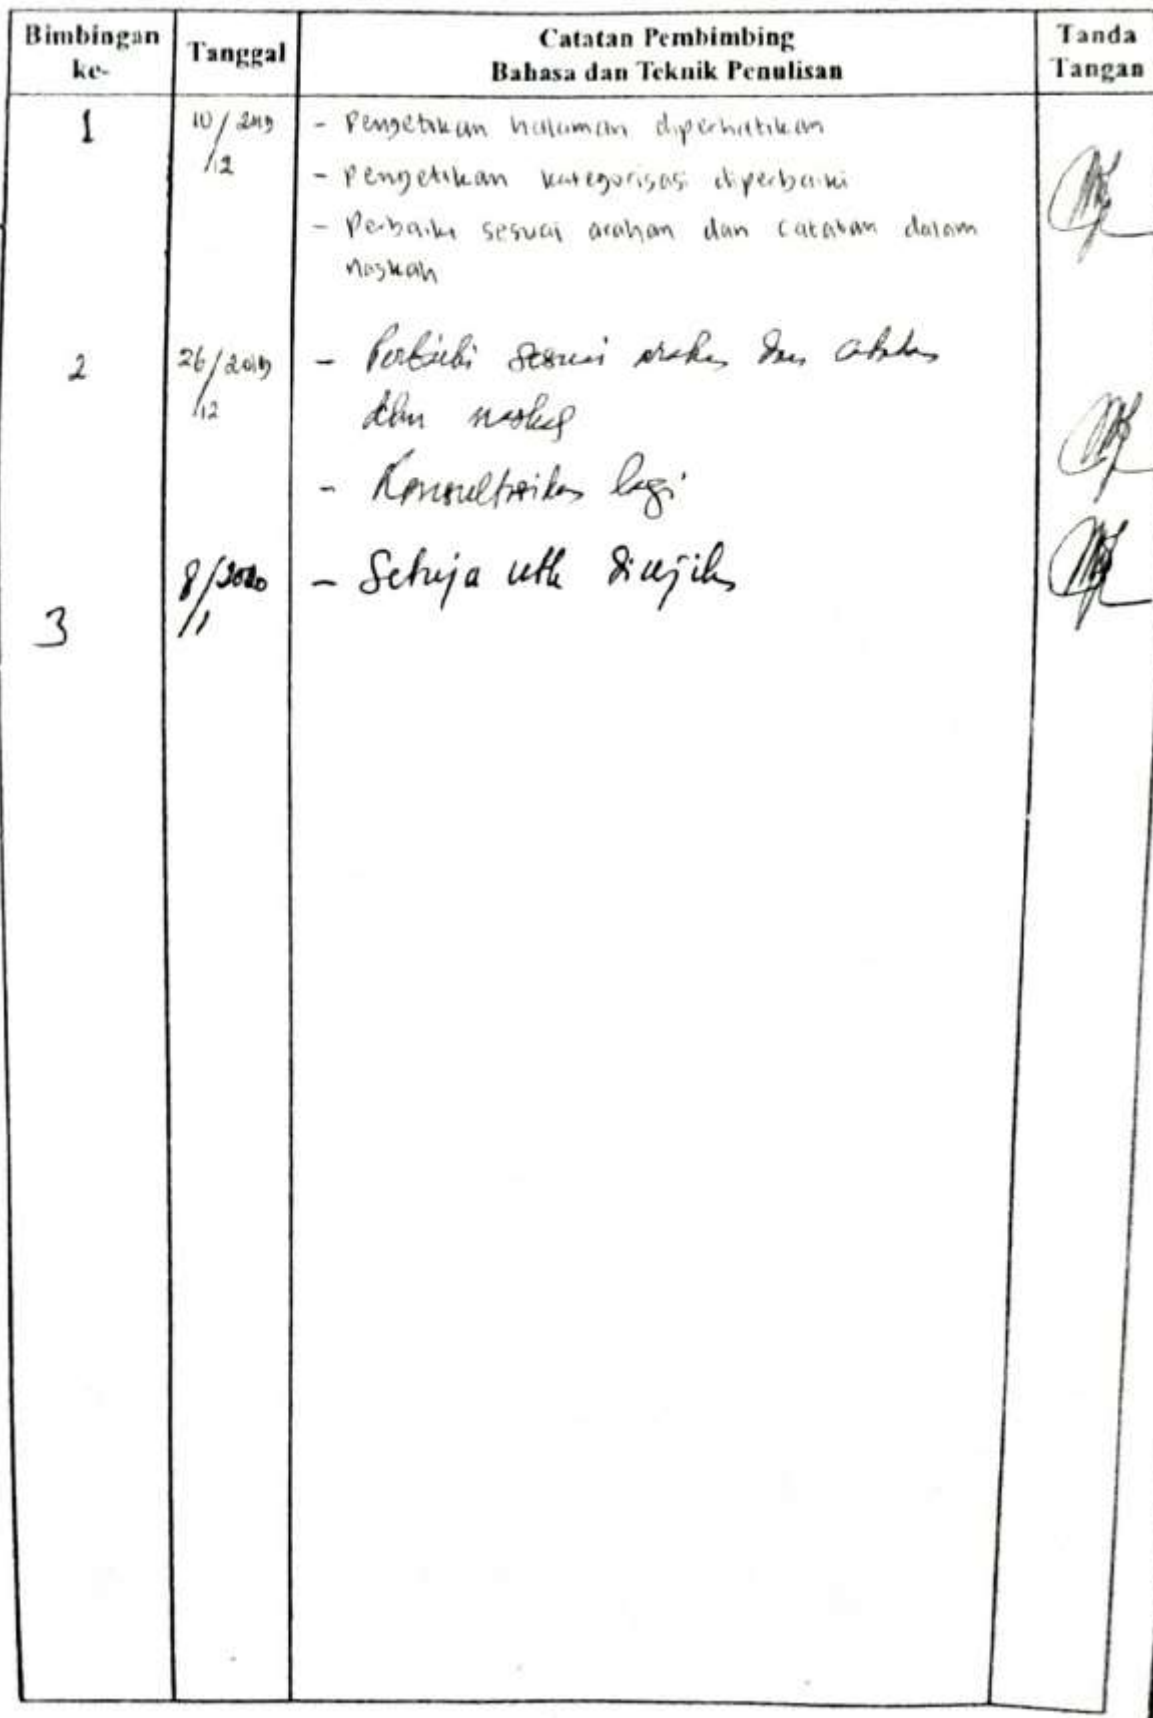 Bimbingan ke- Tanggal Catatan Pembimbing Bahasa dan Teknik Penulisan Tanda Tangan
1 10/12 2019 - Pengetikan halaman diperhatikan
- Pengetikan kategorisasi diperbaiki
- Perbaiki sesuai arahan dan catatan dalam
naskah
2 26/12 2019 - Perbaiki sesuai arahan dan catatan
dlm naskah
- Konsultasikan lagi
3 8/1 2020 - Setuju utk diujikan